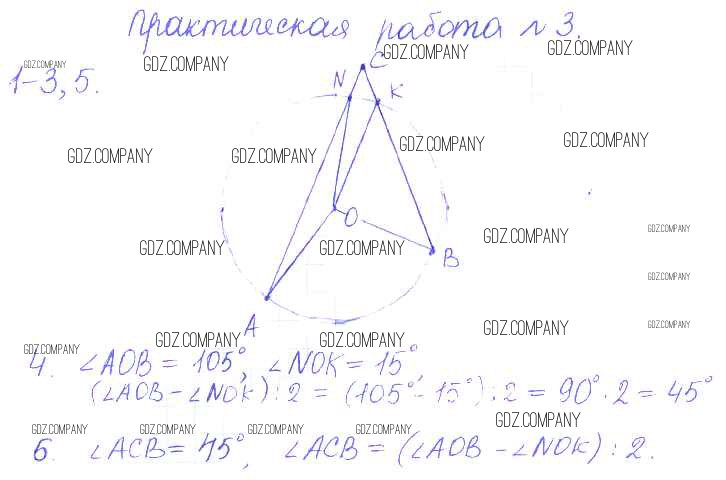 Практическая работа №3.
1-3, 5.
GDZ.COMPANY GDZ.COMPANY GDZ.COMPANY GDZ.COMPANY
C
N
K
GDZ.COMPANY GDZ.COMPANY GDZ.COMPANY GDZ.COMPANY
O
GDZ.COMPANY GDZ.COMPANY GDZ.COMPANY GDZ.COMPANY
B
GDZ.COMPANY
A
GDZ.COMPANY GDZ.COMPANY
GDZ.COMPANY GDZ.COMPANY GDZ.COMPANY
4. ∠AOB = 105°, ∠NOK = 15°,
(∠AOB - ∠NOK) : 2 = (105° - 15°) : 2 = 90° · 2 = 45°
GDZ.COMPANY
GDZ.COMPANY GDZ.COMPANY GDZ.COMPANY GDZ.COMPANY
6. ∠ACB = 45°, ∠ACB = (∠AOB - ∠NOK) : 2.